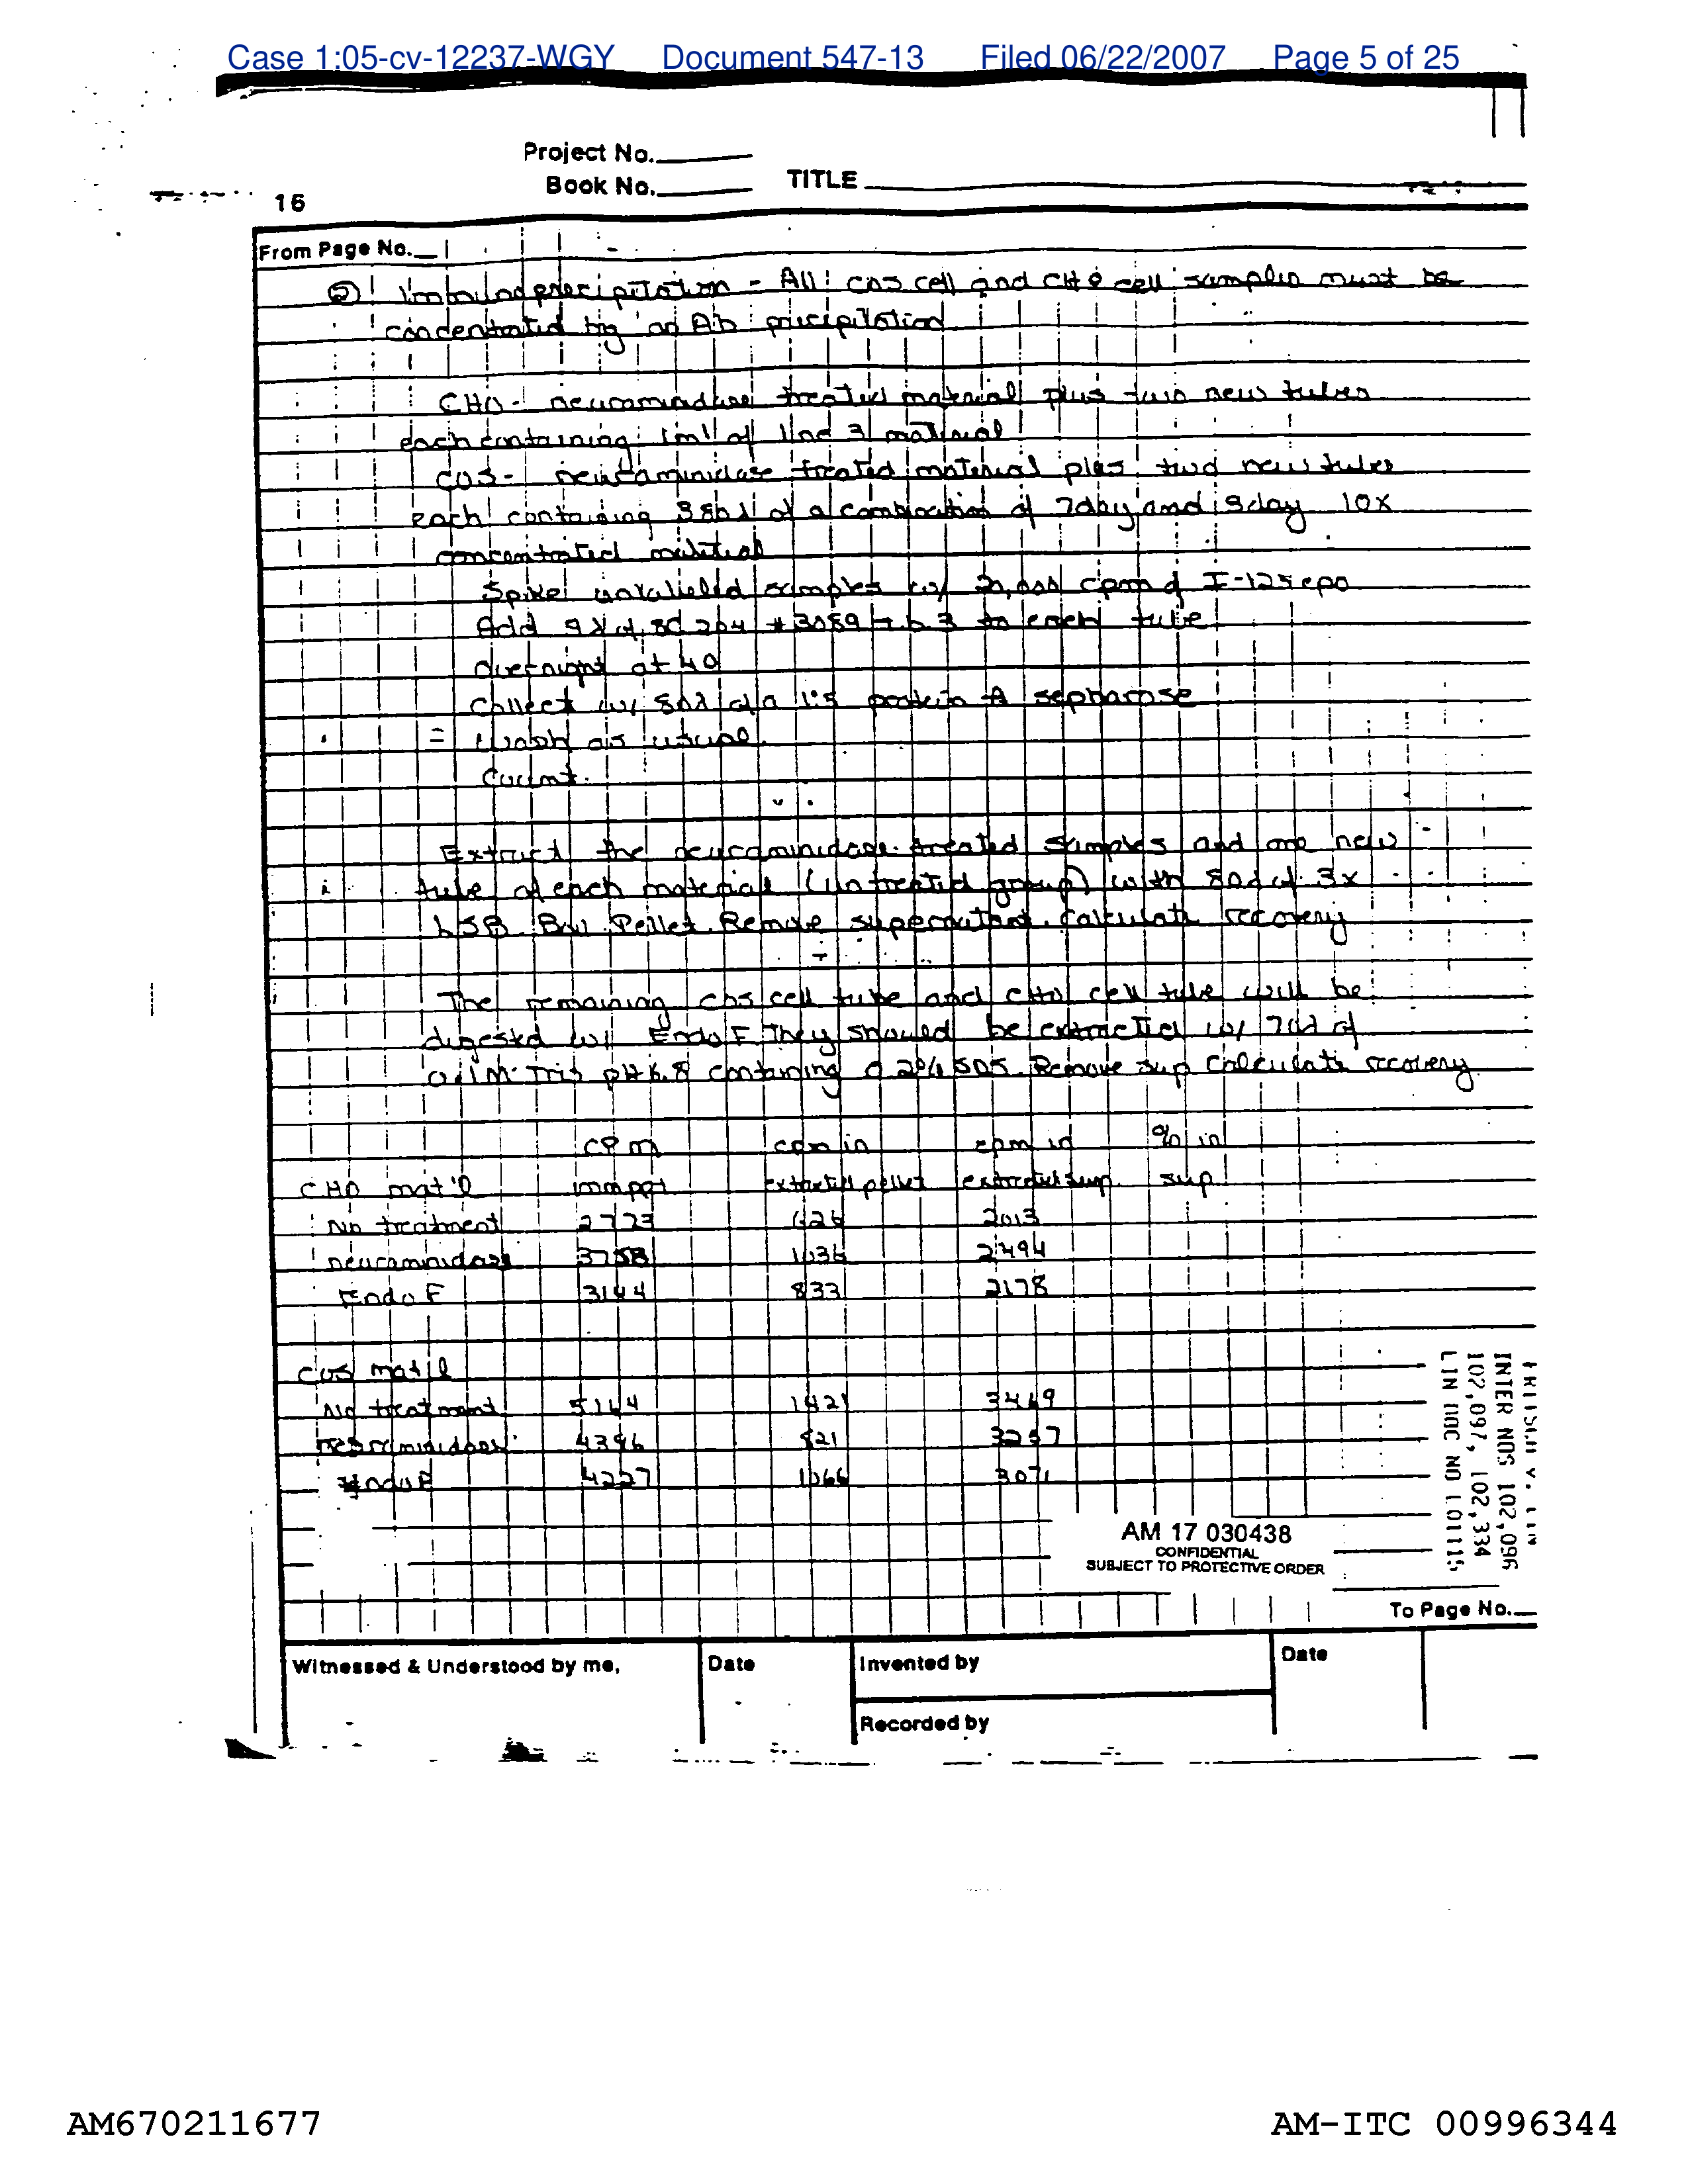 Case 1:05-cv-12237-WGY Document 547-13 Filed 06/22/2007 Page 5 of 25
Project No.
Book No. TITLE
16
From Page No.
② Immunoprecipitation - All COS cell and CHO cell samples must be
concentrated by an Ab precipitation
CHO - neuraminidase treated material plus two new tubes
each containing 1ml of line 3 material
COS - neuraminidase treated material plus two new tubes
each containing of a combination of 7day and 9day 10x
concentrated material
Spike unlabeled samples w/ 20,000 cpm of I-125 epo
Add #3089 to each tube
Overnight at 40
Collect w/ 50λ of a 1:5 protein A sepharose
= wash as usual
Count.
Extract the neuraminidase treated samples and one new
tube of each material (untreated group) with 80λ of 3x
LSB. Boil. Pellet. Remove supernatant. Calculate recovery
The remaining COS cell tube and CHO cell tube will be
digested w/ Endo F. They should be extracted w/ 70λ of
0.1M Tris pH 6.8 containing 0.2% SDS. Remove sup Calculate recovery
cpm cpm in cpm in % in
CHO mat'l immppt extracted pellet extracted sup. sup
No treatment 2723 626 2013
neuraminidase 3758 1036 2494
Endo F 3144 833 2178
COS mat'l
No treatment 5164 1421 3469
neuraminidase 4396 821 3257
Endo F 4227 1066 3071
INTER NOS 102,096
102,097, 102,334
LIN DOC NO
AM 17 030438
CONFIDENTIAL
SUBJECT TO PROTECTIVE ORDER
To Page No.
Witnessed & Understood by me, Date Invented by Date
Recorded by
AM670211677 AM-ITC 00996344